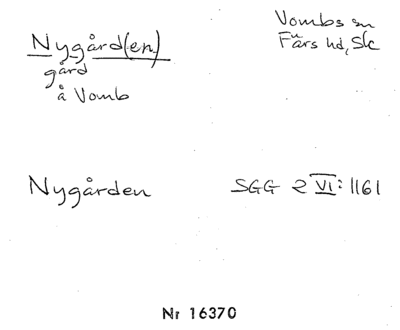 Nygård(en)
gård
å Vomb
Vombs sn
Färs hd, Sk
Nygården
SGG 2 VI: 1161
Nr 16370